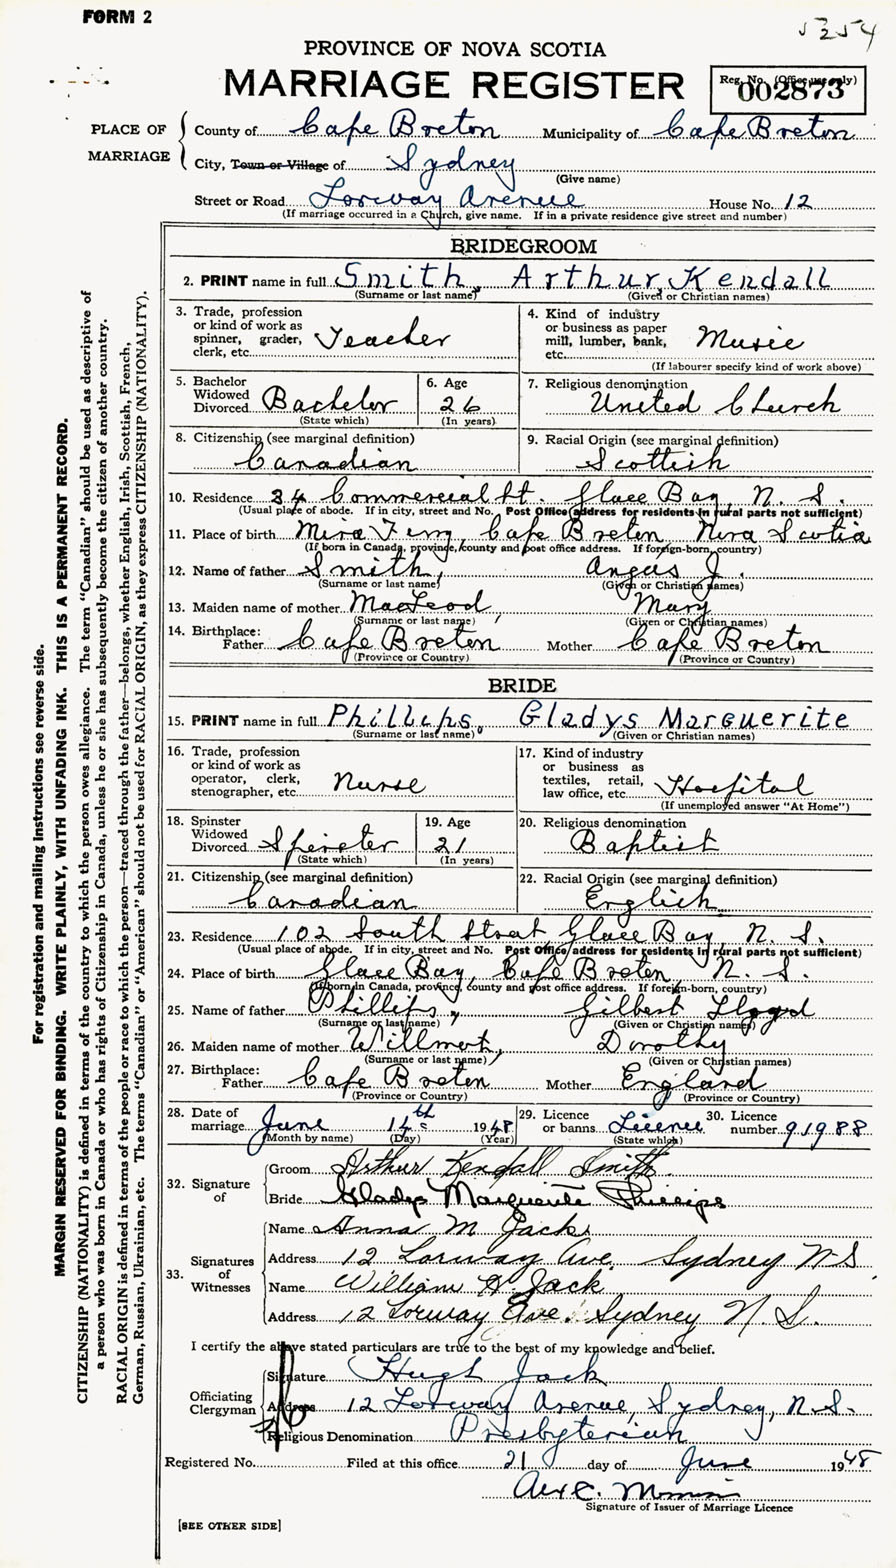 FORM 2
5254
PROVINCE OF NOVA SCOTIA
MARRIAGE REGISTER
Reg. No. (Office use only)
002873
PLACE OF MARRIAGE
County of Cape Breton Municipality of Cape Breton
City, Town or Village of Sydney
(Give name)
Street or Road Lorway Avenue House No. 12
(If marriage occurred in a Church, give name. If in a private residence give street and number)
BRIDEGROOM
2. PRINT name in full Smith, Arthur, Kendall
(Surname or last name) (Given or Christian names)
3. Trade, profession or kind of work as spinner, grader, clerk, etc. Teacher
4. Kind of industry or business as paper mill, lumber, bank, etc. Music
(If labourer specify kind of work above)
5. Bachelor Widowed Divorced Bachelor
(State which)
6. Age 26
(In years)
7. Religious denomination United Church
8. Citizenship (see marginal definition) Canadian
9. Racial Origin (see marginal definition) Scottish
10. Residence 34 Commercial St. Glace Bay, N. S.
(Usual place of abode. If in city, street and No. Post Office address for residents in rural parts not sufficient)
11. Place of birth Mira Ferry, Cape Breton, Nova Scotia
(If born in Canada, province, county and post office address. If foreign-born, country)
12. Name of father Smith, Angus J.
(Surname or last name) (Given or Christian names)
13. Maiden name of mother MacLeod, Mary
(Surname or last name) (Given or Christian names)
14. Birthplace: Father Cape Breton Mother Cape Breton
(Province or Country) (Province or Country)
BRIDE
15. PRINT name in full Phillips, Gladys Marguerite
(Surname or last name) (Given or Christian names)
16. Trade, profession or kind of work as operator, clerk, stenographer, etc. Nurse
17. Kind of industry or business as textiles, retail, law office, etc. Hospital
(If unemployed answer "At Home")
18. Spinster Widowed Divorced Spinster
(State which)
19. Age 21
(In years)
20. Religious denomination Baptist
21. Citizenship (see marginal definition) Canadian
22. Racial Origin (see marginal definition) English
23. Residence 102 South Street Glace Bay, N. S.
(Usual place of abode. If in city, street and No. Post Office address for residents in rural parts not sufficient)
24. Place of birth Glace Bay, Cape Breton, N. S.
(If born in Canada, province, county and post office address. If foreign-born, country)
25. Name of father Phillips, Gilbert Lloyd
(Surname or last name) (Given or Christian names)
26. Maiden name of mother Willmot, Dorothy
(Surname or last name) (Given or Christian names)
27. Birthplace: Father Cape Breton Mother England
(Province or Country) (Province or Country)
28. Date of marriage June 14th 1948
(Month by name) (Day) (Year)
29. Licence or banns Licence
(State which)
30. Licence number 91988
32. Signature of
Groom Arthur Kendall Smith
Bride Gladys Marguerite Phillips
33. Signatures of Witnesses
Name Anna M. Jack
Address 12 Lorway Ave. Sydney N S
Name William H. Jack
Address 12 Lorway Ave. Sydney N. S.
I certify the above stated particulars are true to the best of my knowledge and belief.
Officiating Clergyman
Signature Hugh Jack
Address 12 Lorway Avenue, Sydney, N.S.
Religious Denomination Presbyterian
Registered No. Filed at this office 21 day of June 1948
Signature of Issuer of Marriage Licence
[SEE OTHER SIDE]
For registration and mailing instructions see reverse side.
MARGIN RESERVED FOR BINDING. WRITE PLAINLY, WITH UNFADING INK. THIS IS A PERMANENT RECORD.
CITIZENSHIP (NATIONALITY) is defined in terms of the country to which the person owes allegiance. The term "Canadian" should be used as descriptive of
a person who was born in Canada or who has rights of Citizenship in Canada, unless he or she has subsequently become the citizen of another country.
RACIAL ORIGIN is defined in terms of the people or race to which the person—traced through the father—belongs, whether English, Irish, Scottish, French,
German, Russian, Ukrainian, etc. The terms "Canadian" or "American" should not be used for RACIAL ORIGIN, as they express CITIZENSHIP (NATIONALITY).